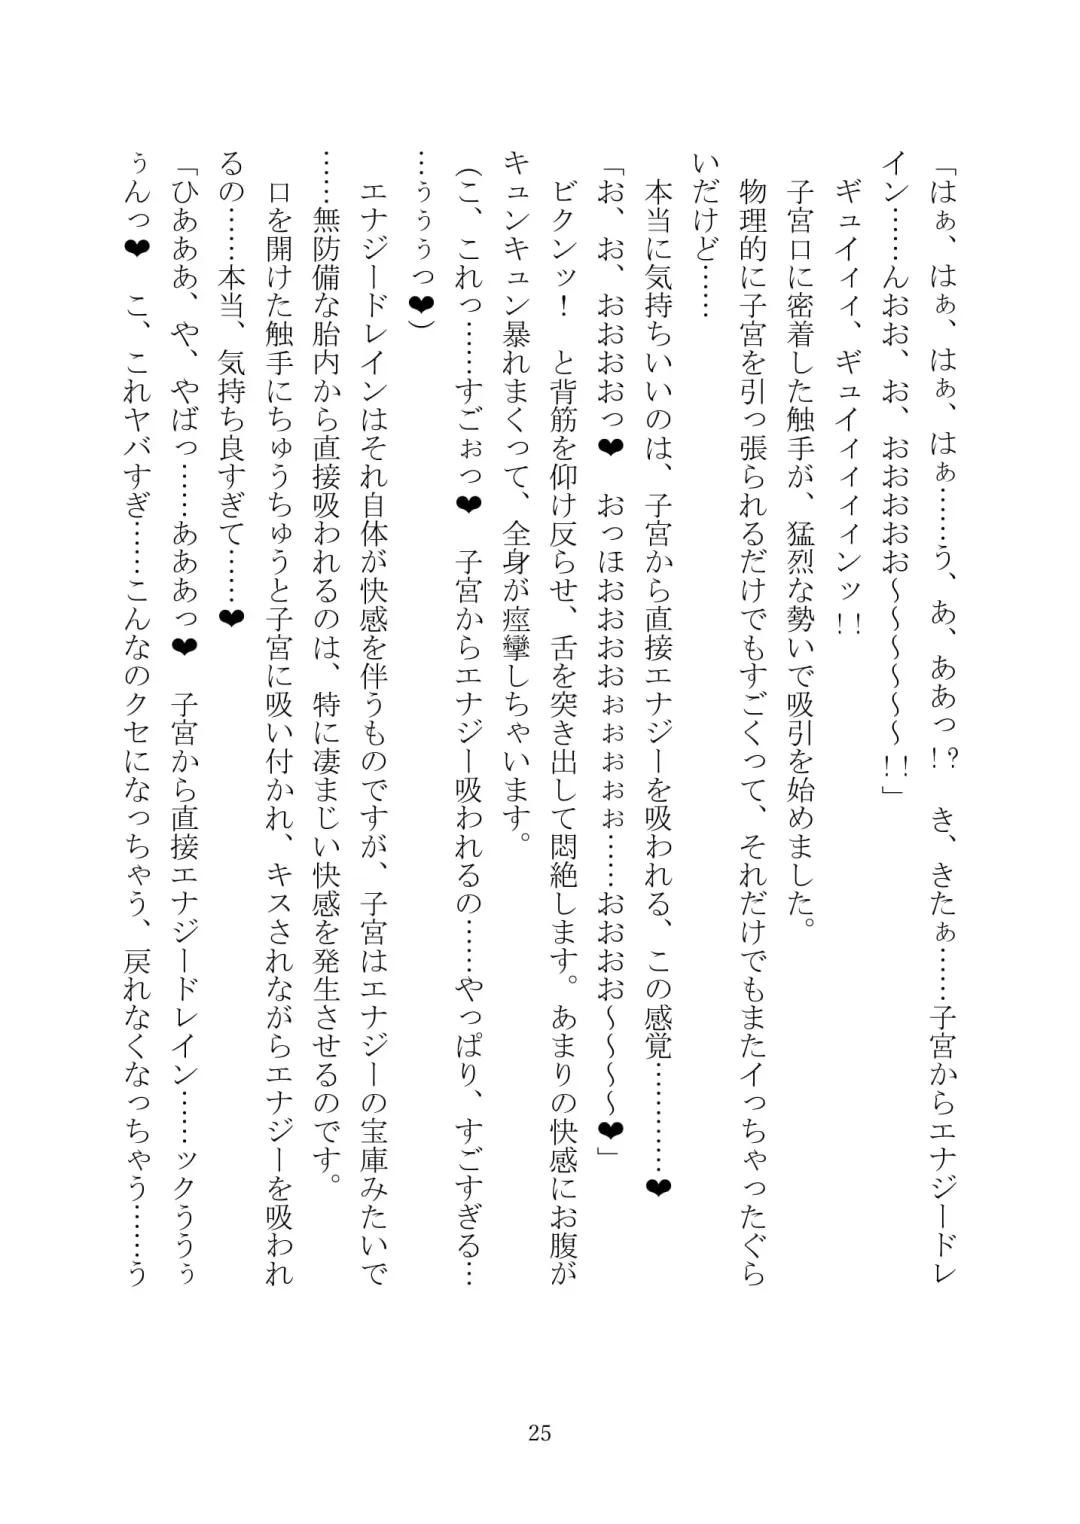 「はぁ、はぁ、はぁ、はぁ……う、あ、ああっ!?　き、きたぁ……子宮からエナジードレ
イン……んおお、お、おおおおお～～～～～～!!」
　ギュイィィ、ギュイィィィィンッ!!
　子宮口に密着した触手が、猛烈な勢いで吸引を始めました。
　物理的に子宮を引っ張られるだけでもすごくって、それだけでもまたイっちゃったぐら
いだけど……
　本当に気持ちいいのは、子宮から直接エナジーを吸われる、この感覚…………❤
「お、お、おおおおっ❤　おっほおおおおぉぉぉぉぉ……おおおお～～～～❤」
　ビクンッ！　と背筋を仰け反らせ、舌を突き出して悶絶します。あまりの快感にお腹が
キュンキュン暴れまくって、全身が痙攣しちゃいます。
（こ、これっ……すごぉっ❤　子宮からエナジー吸われるの……やっぱり、すごすぎる…
…ぅぅぅっ❤）
　エナジードレインはそれ自体が快感を伴うものですが、子宮はエナジーの宝庫みたいで
……無防備な胎内から直接吸われるのは、特に凄まじい快感を発生させるのです。
　口を開けた触手にちゅうちゅうと子宮に吸い付かれ、キスされながらエナジーを吸われ
るの……本当、気持ち良すぎて……❤
「ひあああ、や、やばっ……あああっ❤　子宮から直接エナジードレイン……ックううぅ
ぅんっ❤　こ、これヤバすぎ……こんなのクセになっちゃう、戻れなくなっちゃう……う
25